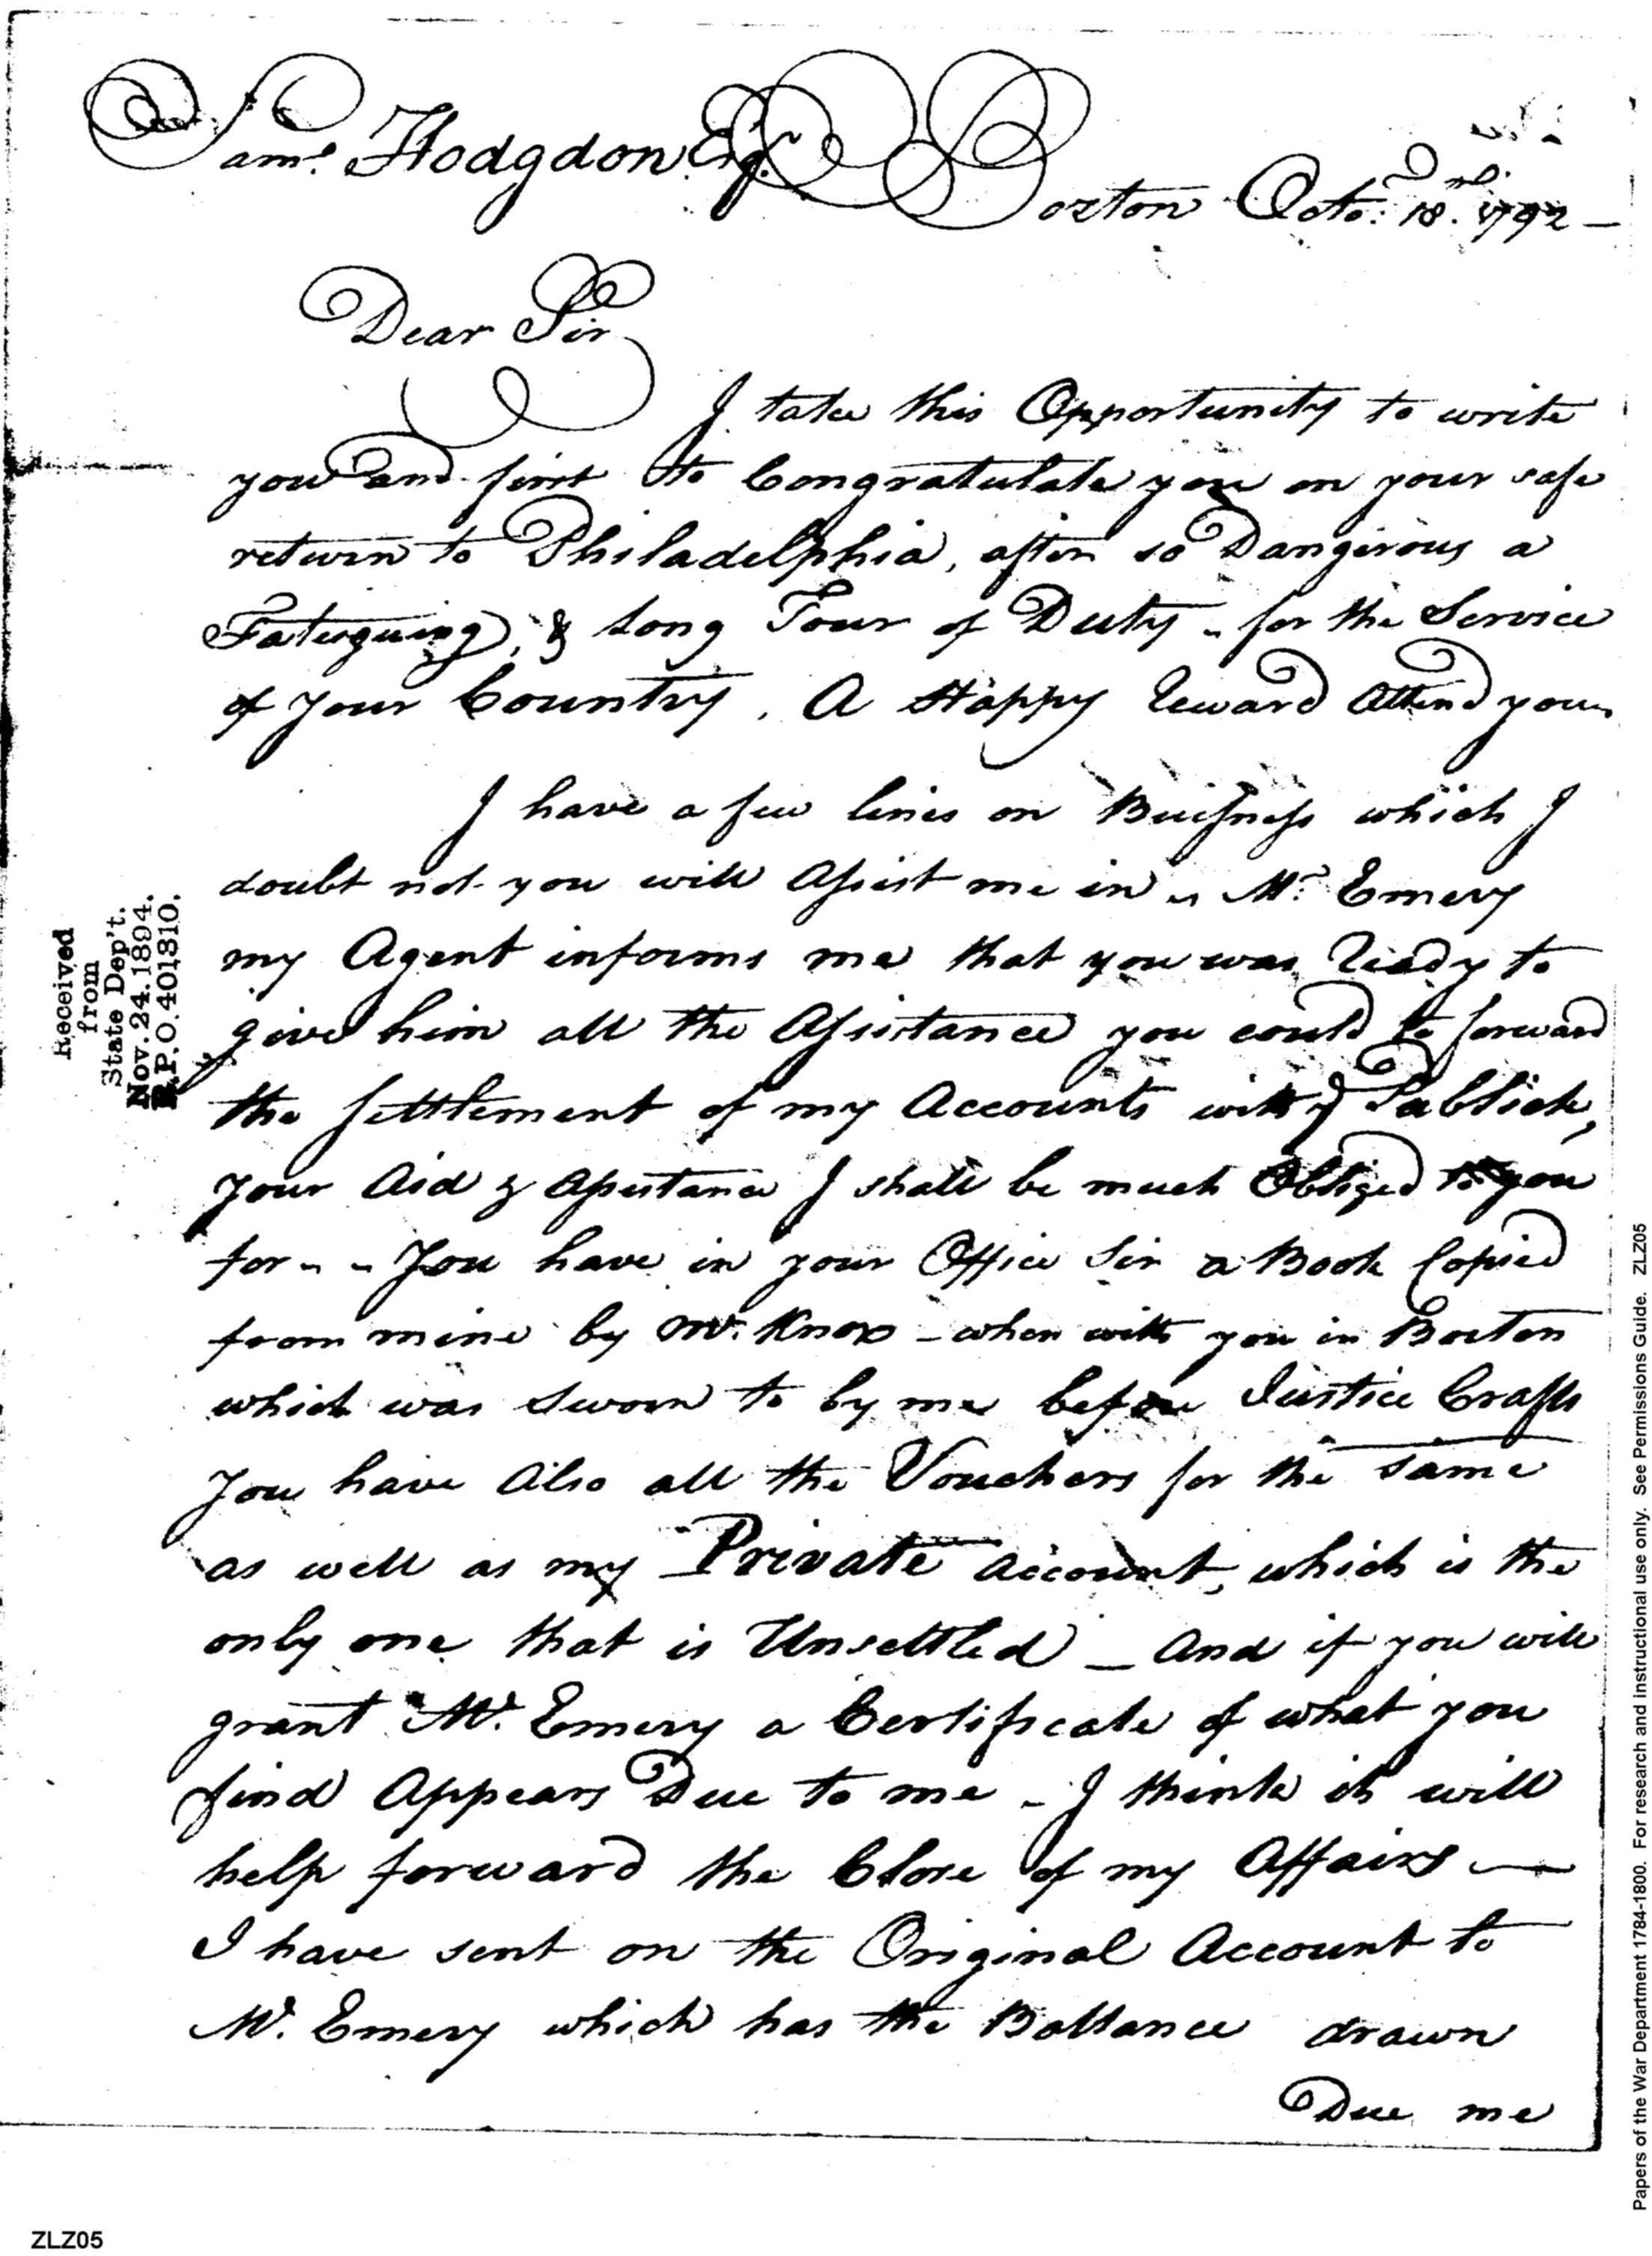 Saml. Hodgdon Esqr.
Boston Octo. 18. 1792 —
Dear Sir
I take this Opportunity to write
you and first to Congratulate you on your safe
return to Philadelphia, after so Dangerous a
Fateiguing, & Long Tour of Duty - for the Service
of your Country. A Happy Reward Attend you
I have a few lines on Buisness which I
doubt not you will Assist me in - Mr. Emery
my Agent informs me that you was Ready to
give him all the Assistance you could to forward
the Settlement of my Accounts with ye Publick,
your Aid & Assistance I shall be much Obliged to you
for - - You have in your Office Sir a Book Copied
from mine by Mr. Knox - when with you in Boston
which was Sworn to by me before Justice Crafts
You have Also all the Vouchers for the same
as well as my Private account, which is the
only one that is Unsettled — And if you will
grant Mr. Emery a Certificate of what you
find Appears Due to me - I think it will
help forward the Close of my Affairs —
I have sent on the Original Account to
Mr. Emery which has the Ballance drawn
Due me
Received
from
State Dep't.
Nov. 24. 1894.
R.P.O. 401310.
Papers of the War Department 1784-1800. For research and instructional use only. See Permissions Guide. ZLZ05
ZLZ05